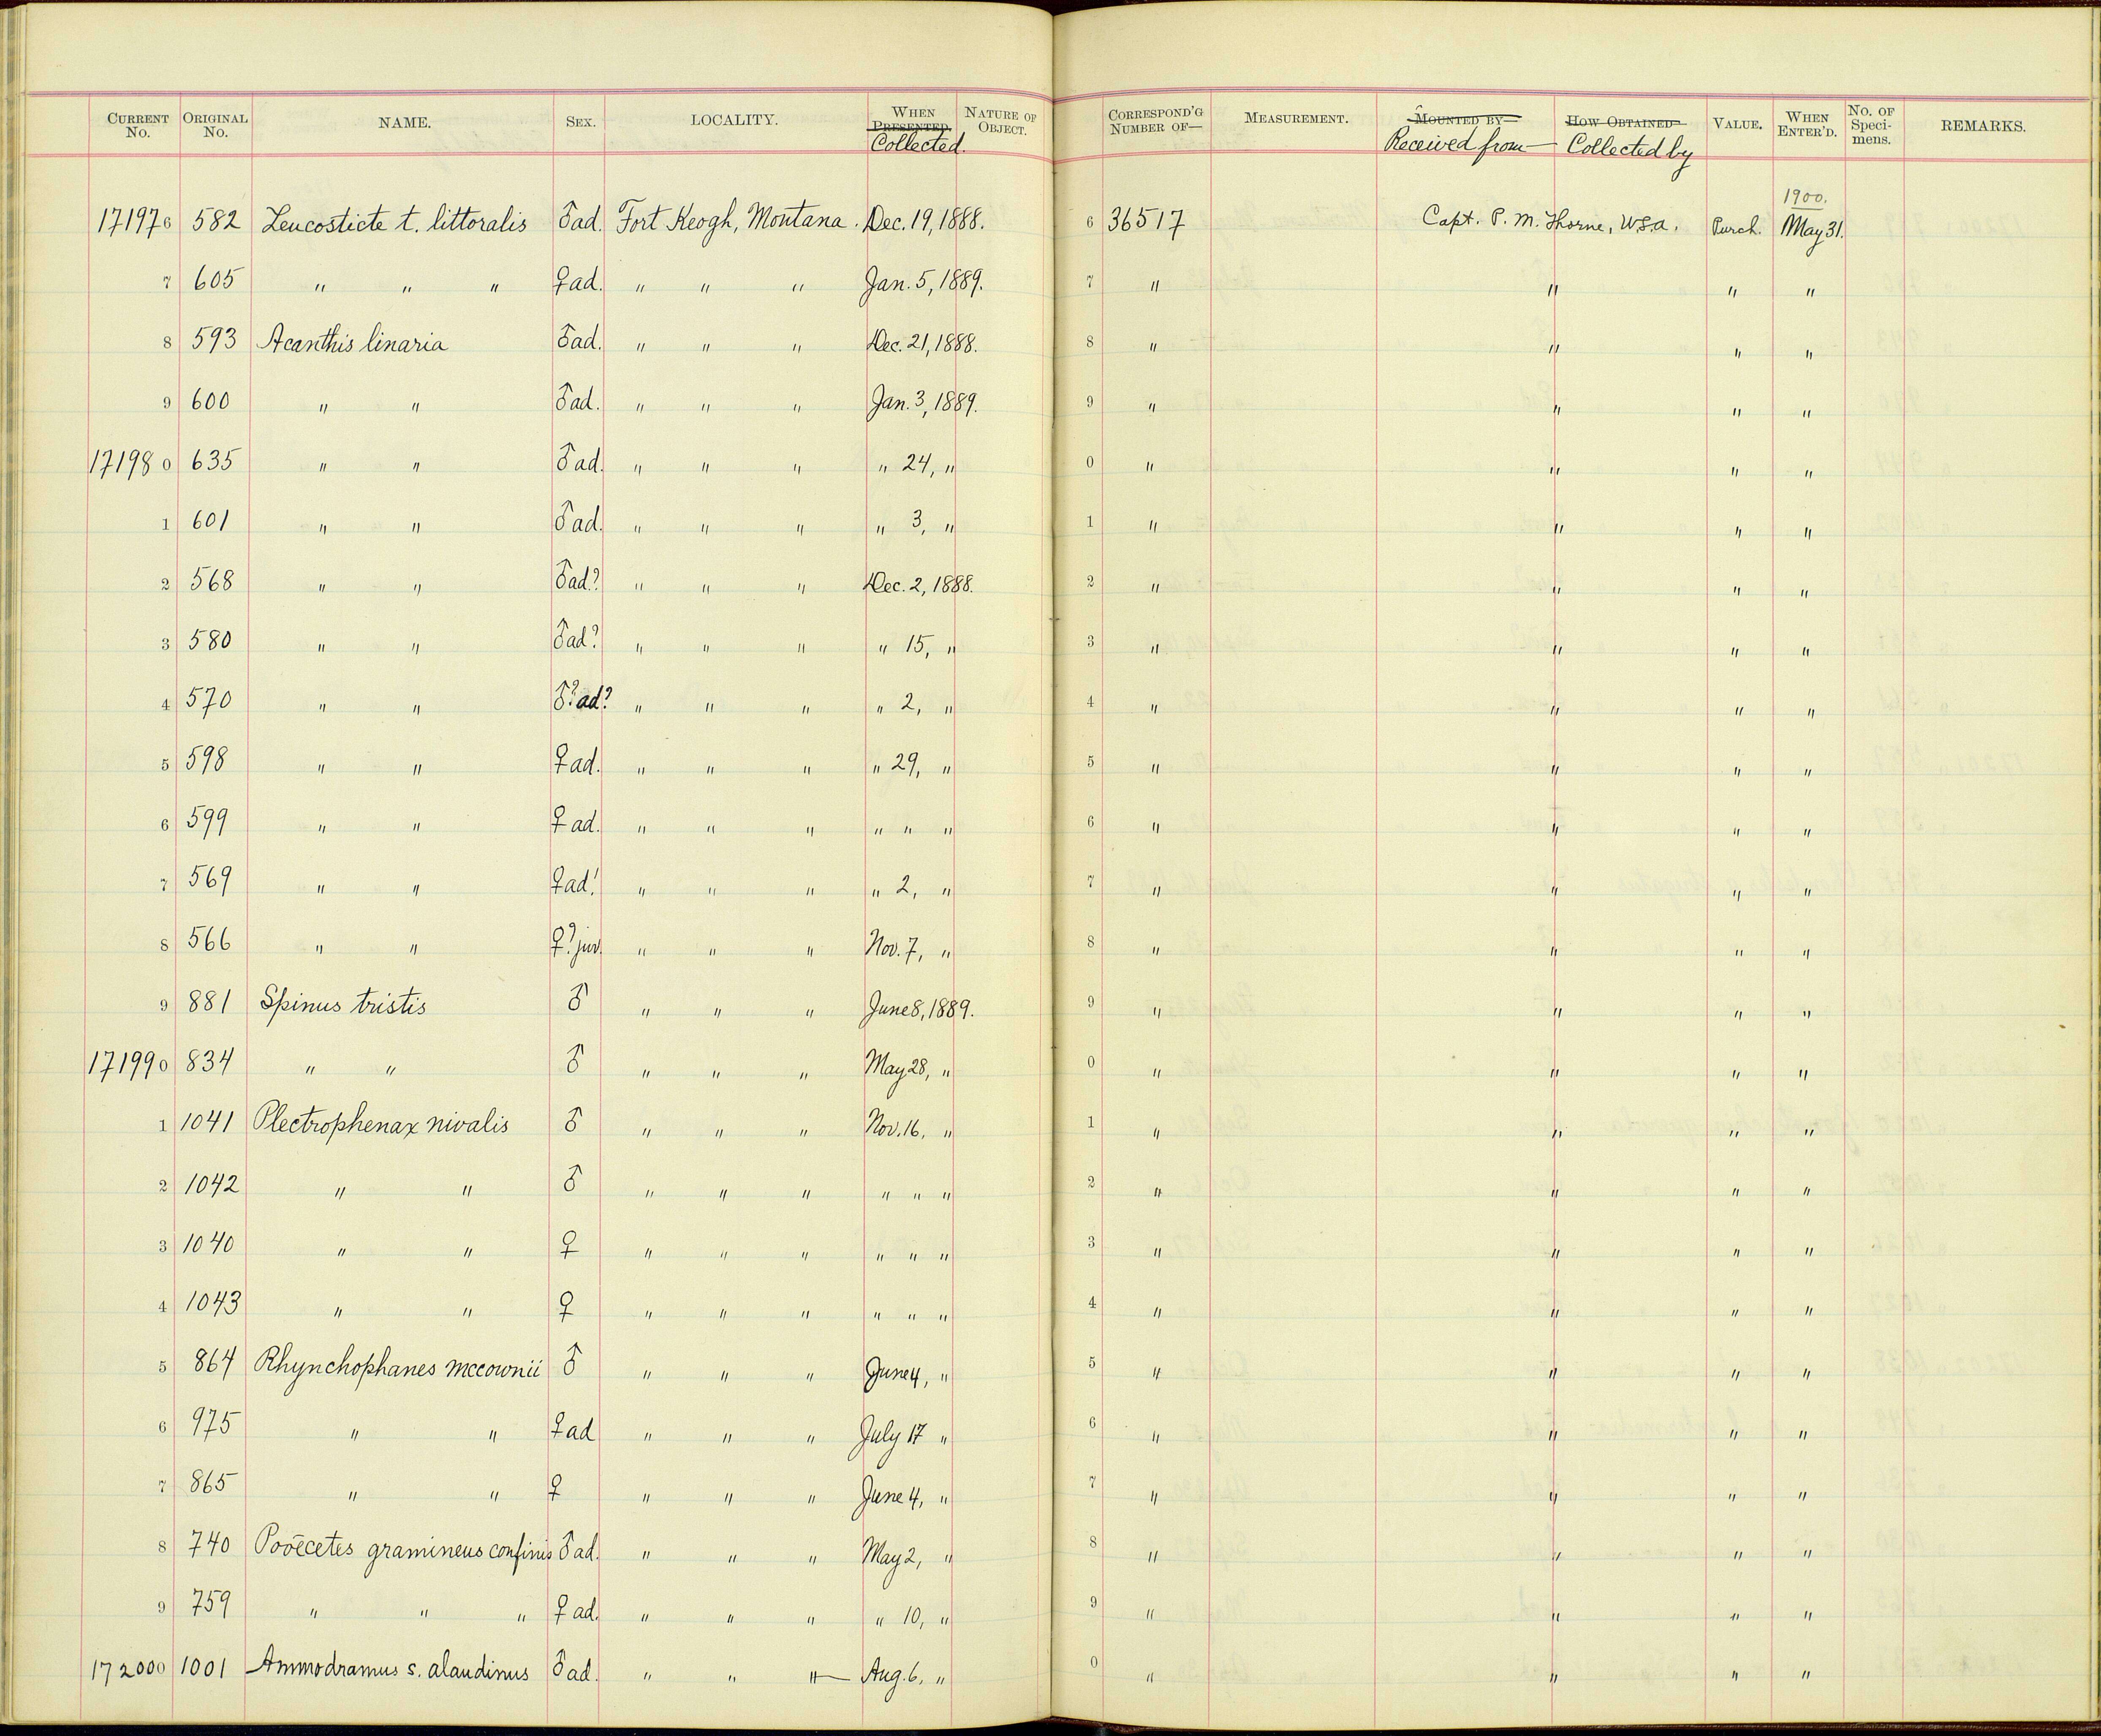 CURRENT No. ORIGINAL No. NAME. SEX. LOCALITY. WHEN PRESENTED. Collected. NATURE OF OBJECT. CORRESPOND'G NUMBER OF— MEASUREMENT. MOUNTED BY— Received from— HOW OBTAINED— Collected by VALUE. WHEN ENTER'D. No. OF Speci-mens. REMARKS.
1900.
171976 582 Leucosticte t. littoralis ♂ad. Fort Keogh, Montana. Dec. 19, 1888. 6 36517 Capt. P. M. Thorne, U.S.A. Purch. May 31.
7 605 " " " ♀ad. " " " Jan. 5, 1889. 7 " " " "
8 593 Acanthis linaria ♂ad. " " " Dec. 21, 1888. 8 " " " "
9 600 " " ♂ad. " " " Jan. 3, 1889. 9 " " " "
171980 635 " " ♂ad. " " " " 24, " 0 " " " "
1 601 " " ♂ad. " " " " 3, " 1 " " " "
2 568 " " ♂ad? " " " Dec. 2, 1888. 2 " " " "
3 580 " " ♂ad? " " " " 15, " 3 " " " "
4 570 " " ♂?ad? " " " " 2, " 4 " " " "
5 598 " " ♀ad. " " " " 29, " 5 " " " "
6 599 " " ♀ad. " " " " " " 6 " " " "
7 569 " " ♀ad! " " " " 2, " 7 " " " "
8 566 " " ♀?juv. " " " Nov. 7, " 8 " " " "
9 881 Spinus tristis ♂ " " " June 8, 1889. 9 " " " "
171990 834 " " ♂ " " " May 28, " 0 " " " "
1 1041 Plectrophenax nivalis ♂ " " " Nov. 16, " 1 " " " "
2 1042 " " ♂ " " " " " " 2 " " " "
3 1040 " " ♀ " " " " " " 3 " " " "
4 1043 " " ♀ " " " " " " 4 " " " "
5 864 Rhynchophanes mccownii ♂ " " " June 4, " 5 " " " "
6 975 " " ♀ad " " " July 17 " 6 " " " "
7 865 " " ♀ " " " June 4, " 7 " " " "
8 740 Poöecetes gramineus confinis ♂ad. " " " May 2, " 8 " " " "
9 759 " " " ♀ad. " " " " 10, " 9 " " " "
172000 1001 Ammodramus s. alaudinus ♂ad. " " "— Aug. 6, " 0 " " " "